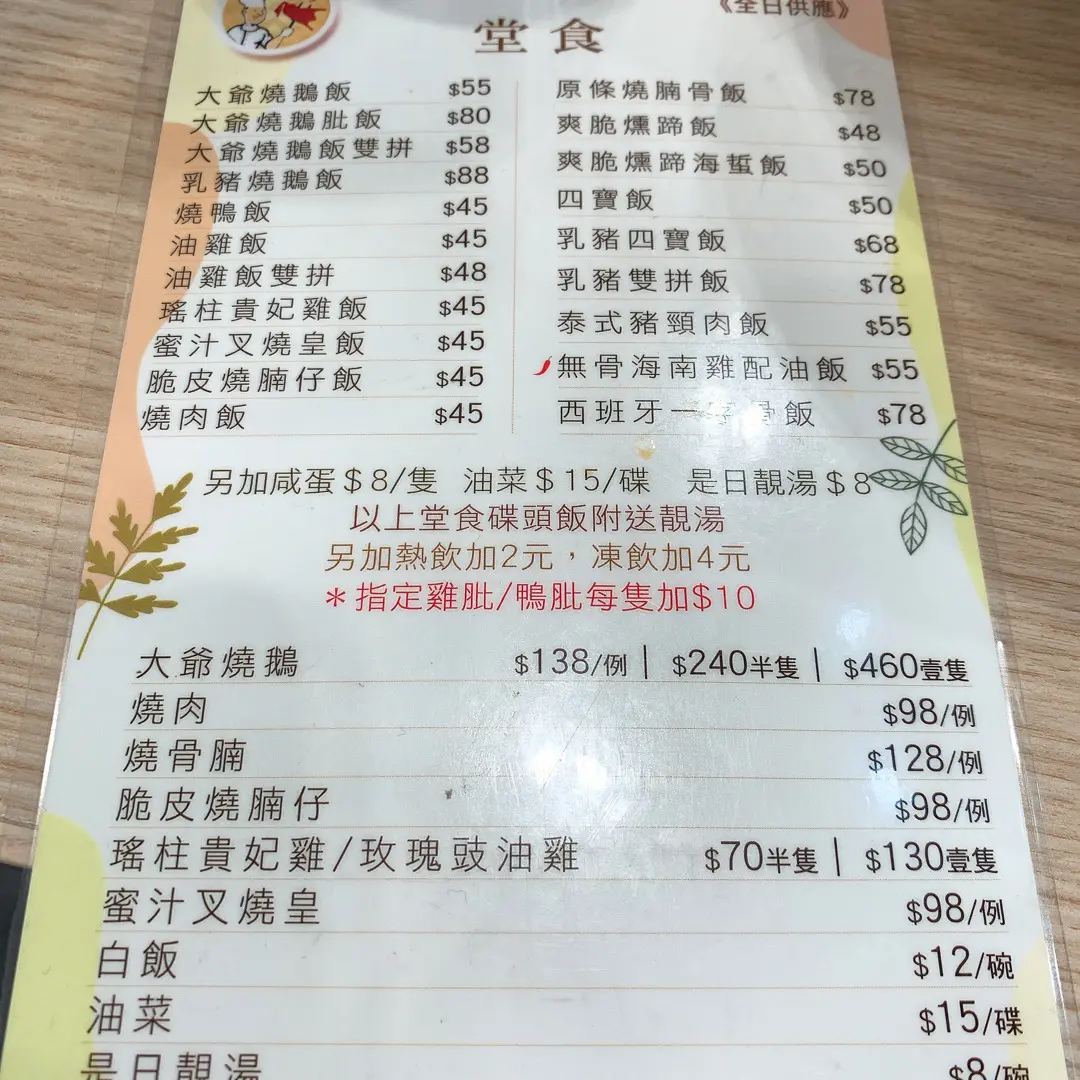 《全日供應》
堂食
大爺燒鵝飯 $55
大爺燒鵝肶飯 $80
大爺燒鵝飯雙拼 $58
乳豬燒鵝飯 $88
燒鴨飯 $45
油雞飯 $45
油雞飯雙拼 $48
瑤柱貴妃雞飯 $45
蜜汁叉燒皇飯 $45
脆皮燒腩仔飯 $45
燒肉飯 $45
原條燒腩骨飯 $78
爽脆燻蹄飯 $48
爽脆燻蹄海蜇飯 $50
四寶飯 $50
乳豬四寶飯 $68
乳豬雙拼飯 $78
泰式豬頸肉飯 $55
無骨海南雞配油飯 $55
西班牙一字骨飯 $78
另加咸蛋$8/隻 油菜$15/碟 是日靚湯$8
以上堂食碟頭飯附送靚湯
另加熱飲加2元，凍飲加4元
*指定雞肶/鴨肶每隻加$10
大爺燒鵝 $138/例 | $240半隻 | $460壹隻
燒肉 $98/例
燒骨腩 $128/例
脆皮燒腩仔 $98/例
瑤柱貴妃雞/玫瑰豉油雞 $70半隻 | $130壹隻
蜜汁叉燒皇 $98/例
白飯 $12/碗
油菜 $15/碟
是日靚湯 $8/碗